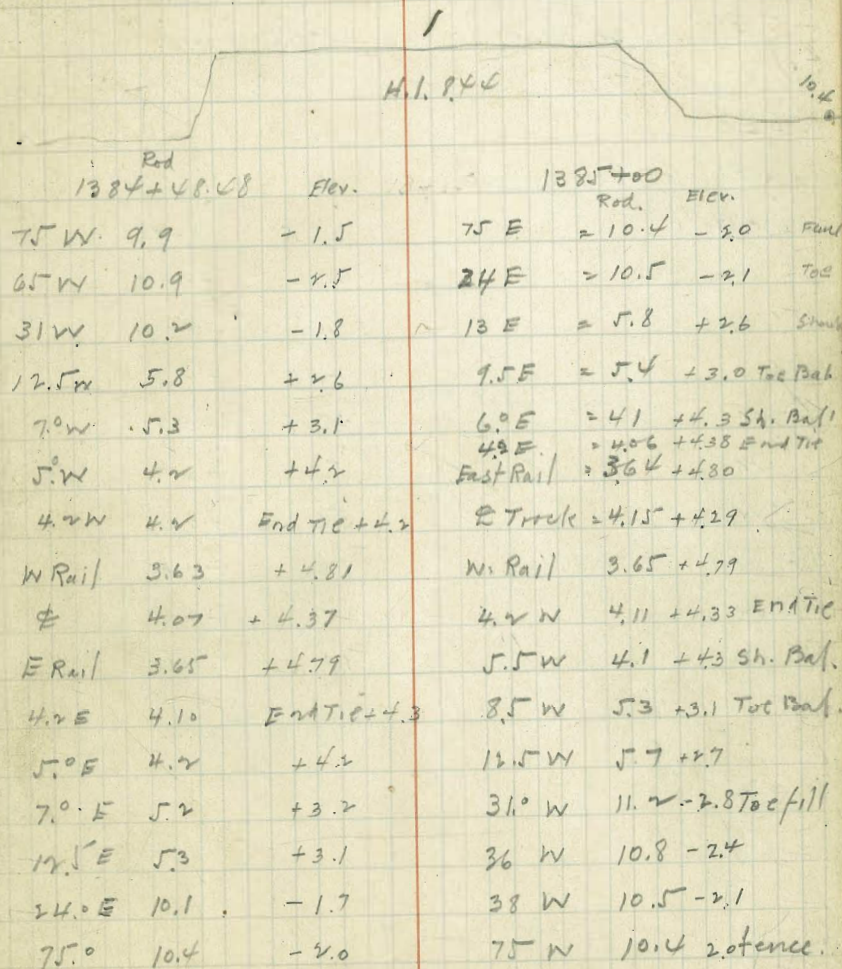 1
H.I. 8.44
10.4
Rod
1384+48.48 Elev.
75 W. 9.9 - 1.5
65 W 10.9 - 2.5
31 W 10.2 - 1.8
12.5 W 5.8 + 2.6
7.0 W 5.3 + 3.1
5.0 W 4.2 +4.2
4.2 W 4.2 End Tie +4.2
W Rail 3.63 + 4.81
℄ 4.07 + 4.37
E Rail 3.65 +4.79
4.2 E 4.10 End Tie +4.3
5.0 E 4.2 +4.2
7.0 E 5.2 +3.2
12.5 E 5.3 +3.1
24.0 E 10.1 - 1.7
75.0 10.4 - 2.0
1385+00
Rod. Elev.
75 E = 10.4 - 2.0
24 E = 10.5 - 2.1 Toe
13 E = 5.8 + 2.6
9.5 E = 5.4 + 3.0 Toe Bal
6.0 E = 4.1 +4.3 Sh. Bal
4.2 E = 4.06 +4.38 End Tie
East Rail = 3.64 +4.80
℄ Track = 4.15 +4.29
W. Rail 3.65 +4.79
4.2 W 4.11 +4.33 End Tie
5.5 W 4.1 +4.3 Sh. Bal.
8.5 W 5.3 +3.1 Toe Bal.
12.5 W 5.7 +2.7
31.0 W 11.2 -2.8 Toe fill
36 W 10.8 -2.4
38 W 10.5 -2.1
75 W 10.4 2.0 fence.